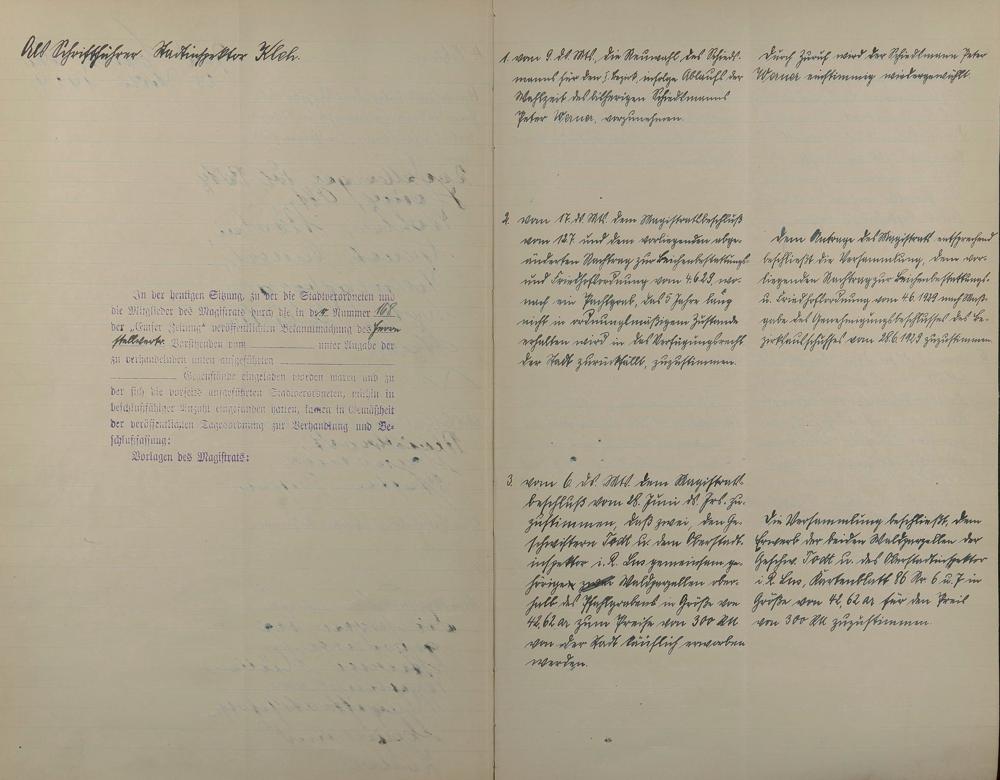 Als Schriftführer: Stadtinspektor
In der heutigen Sitzung, zu der die Stadtverordneten und
die Mitglieder des Magistrats durch die in der Nummer 168
der „Emser Zeitung“ veröffentlichten Bekanntmachung des Herrn
stellvertr. Vorsitzenden vom unter Angabe der
zu verhandelnden unten aufgeführten
Gegenstände eingeladen worden waren und zu
der sich die vorseits aufgeführten Stadtverordneten, mithin in
beschlußfähiger Anzahl eingefunden hatten, kamen in Gemäßheit
der veröffentlichten Tagesordnung zur Verhandlung und Be-
schlußfassung:
Vorlagen des Magistrats:
1. vom 9. ds. Mts., die Neuwahl des Schieds-
manns für den Bezirk, infolge Ablaufs der
Wahlzeit des bisherigen Schiedsmanns
Peter Werner, vorzunehmen.
Durch Zuruf wird der Schiedsmann Peter
Werner einstimmig wiedergewählt.
2. vom 17. ds. Mts. dem Magistratsbeschluß
vom und dem vorliegenden abge-
änderten Nachtrag zur Leichenbestattungs-
und Friedhofsordnung vom wo-
nach ein Pachtgrab, das 5 Jahre lang
nicht in ordnungsmäßigem Zustande
erhalten wird in das Verfügungsrecht
der Stadt zurückfällt, zuzustimmen.
Dem Antrage des Magistrats entsprechend
beschließt die Versammlung, dem vor-
liegenden Nachtrag zur Leichenbestattungs-
u. Friedhofsordnung vom 4.6.1929 nach Maß-
gabe des Genehmigungsbeschlusses des Be-
zirksausschusses vom zuzustimmen.
3. vom 6. ds. Mts. dem Magistrats-
beschluß vom 28. Juni ds. Jrs. zu-
zustimmen, daß zwei, den Ge-
schwistern Todt u. dem Oberstadt-
inspektor i. R. gemeinsam ge-
hörigen Waldparzellen ober-
halb des Pfahlgrabens in Größe von
42,62 ar zum Preise von 300 RM
von der Stadt käuflich erworben
werden.
Die Versammlung beschließt, dem
Erwerb der beiden Waldparzellen der
Geschw. Todt u. des Oberstadtinspektor
i. R. Kartenblatt 86 Nr 6 u. 7 in
Größe von 42,62 ar für den Preis
von 300 RM zuzustimmen.